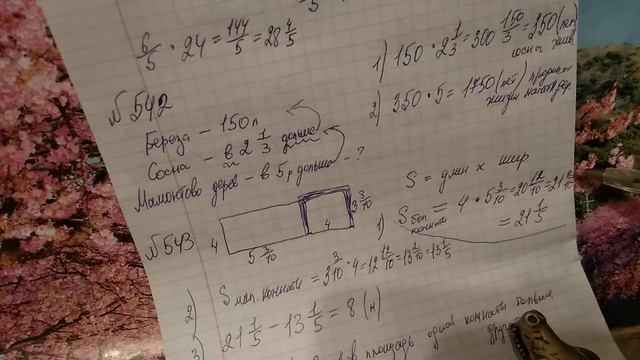 6/5 · 24 = 144/5 = 28 4/5
№542
Береза – 150 л
Сосна – в 2 1/3 дольше
Мамонтово дерев – в 5 р дольше – ?
1) 150 · 2 1/3 = 300 150/3 = 350 (лет)
сосна жив.
2) 350 · 5 = 1750 (лет)
жизни
№543
4
5 3/10
4
3 3/10
S = длин × шир
1) S бол. комнаты = 4 · 5 3/10 = 20 12/10 = 21 2/10
= 21 1/5
2) S мал. комнаты = 3 3/10 · 4 = 12 12/10 = 13 2/10 = 13 1/5
3) 21 1/5 – 13 1/5 = 8 (м)
площадь одной комнаты больше
друго